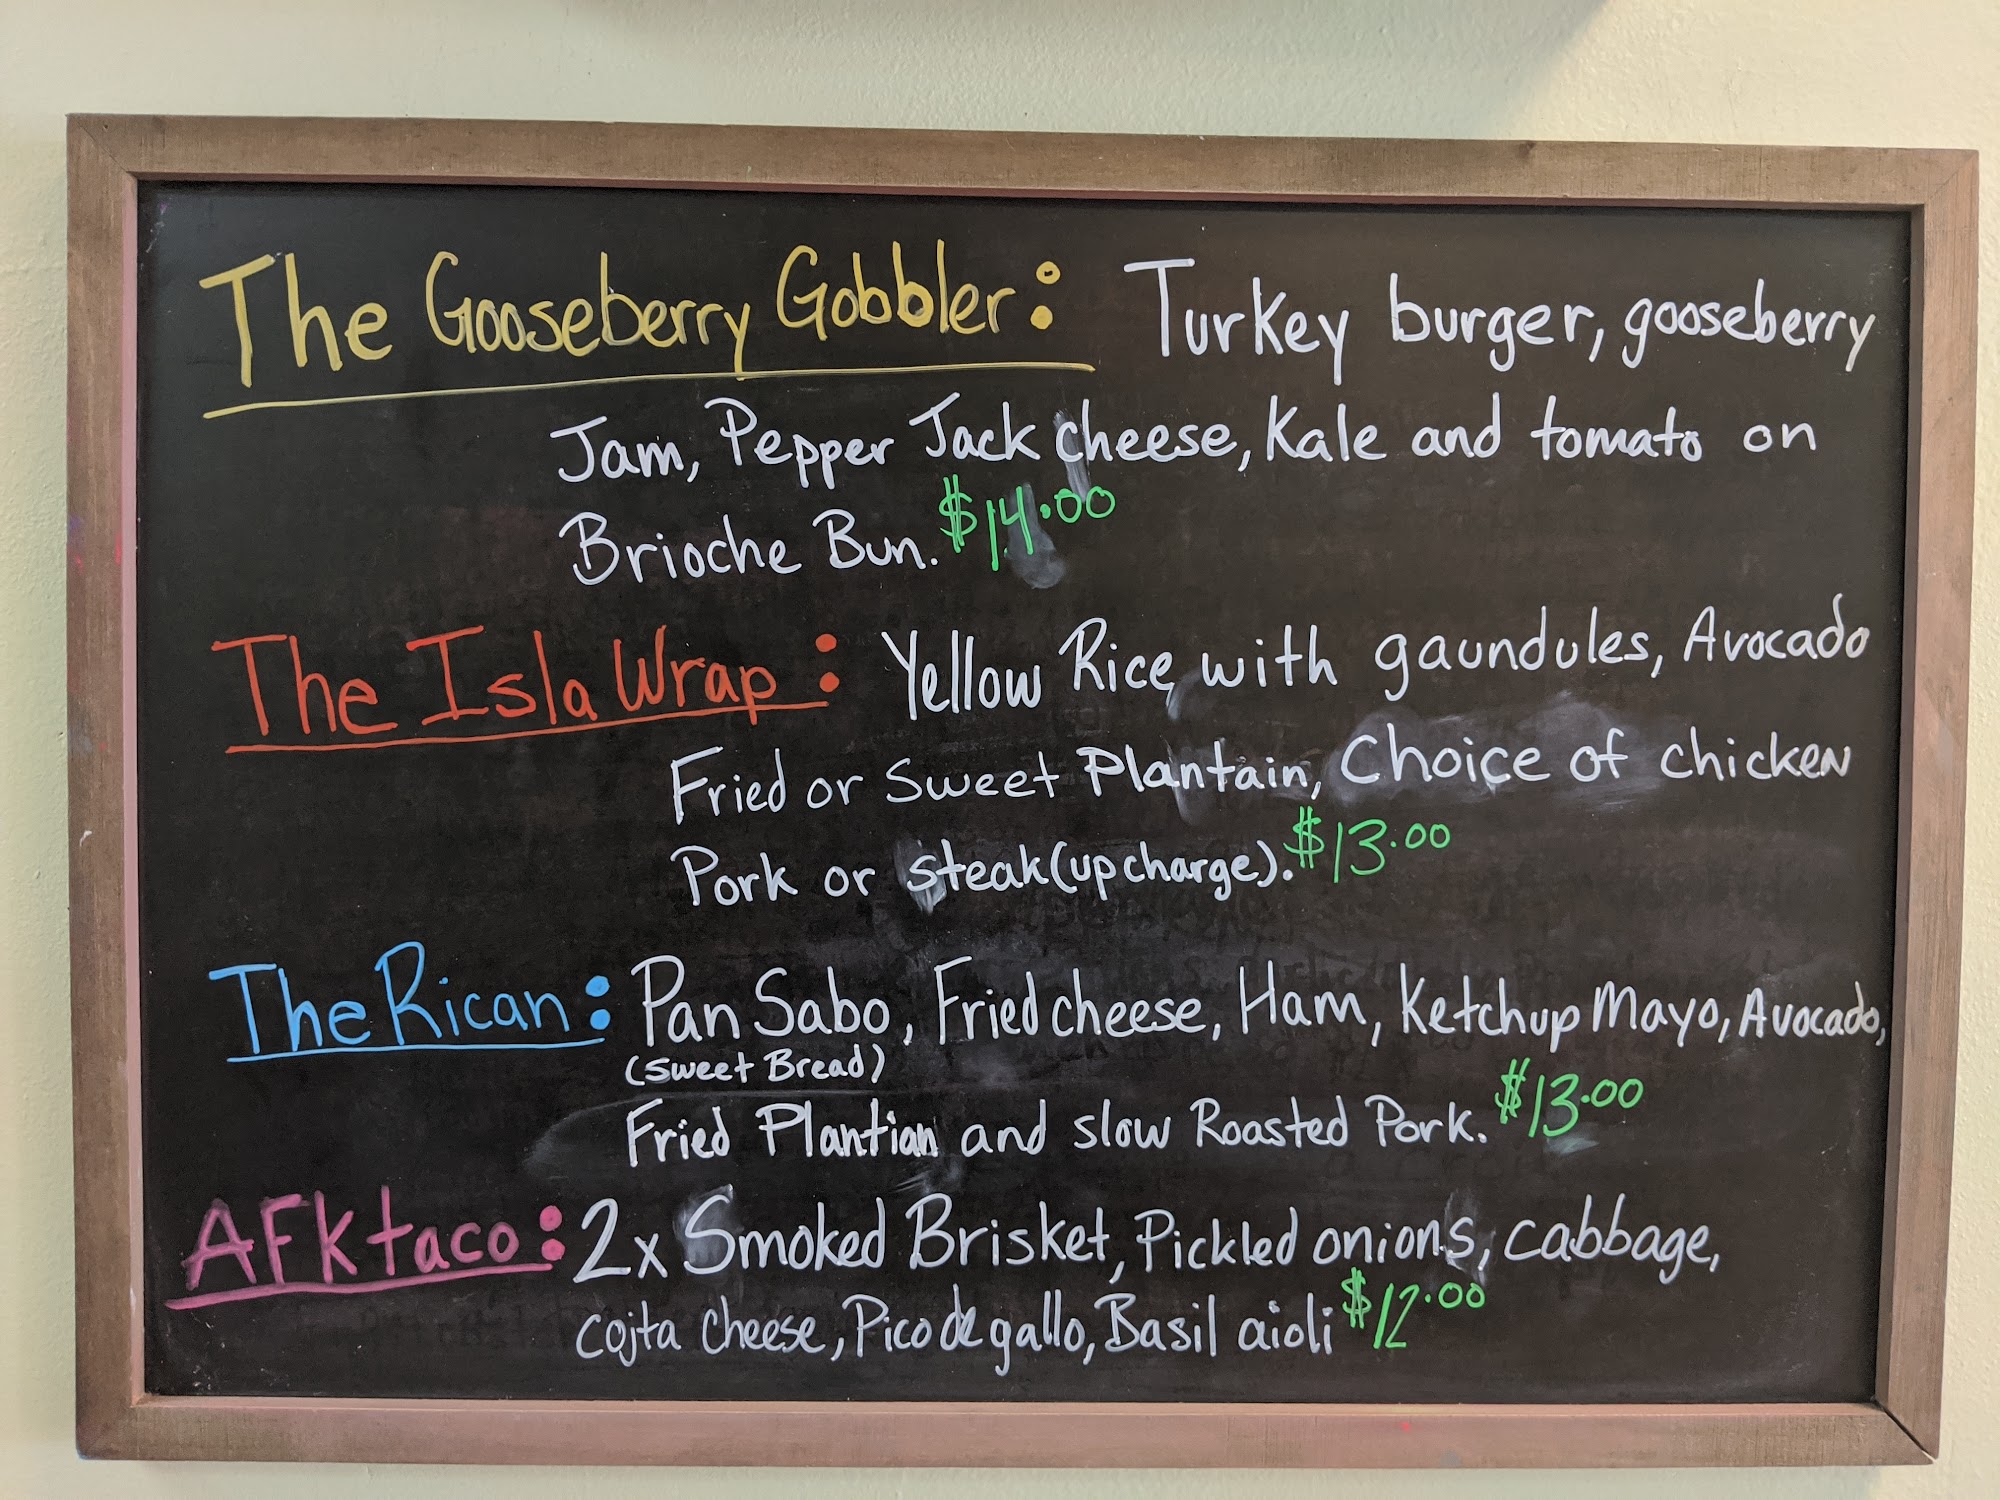 The Gooseberry Gobbler: Turkey burger, gooseberry
Jam, Pepper Jack cheese, Kale and tomato on
Brioche Bun. $14.00
The Isla Wrap: Yellow Rice with gaundules, Avocado
Fried or sweet Plantain, Choice of chicken
Pork or steak (up charge). $13.00
The Rican: Pan Sabo, Fried cheese, Ham, Ketchup Mayo, Avocado,
(sweet Bread)
Fried Plantian and slow Roasted Pork. $13.00
AFK taco: 2x Smoked Brisket, Pickled onions, cabbage,
cojta cheese, Pico de gallo, Basil aioli $12.00